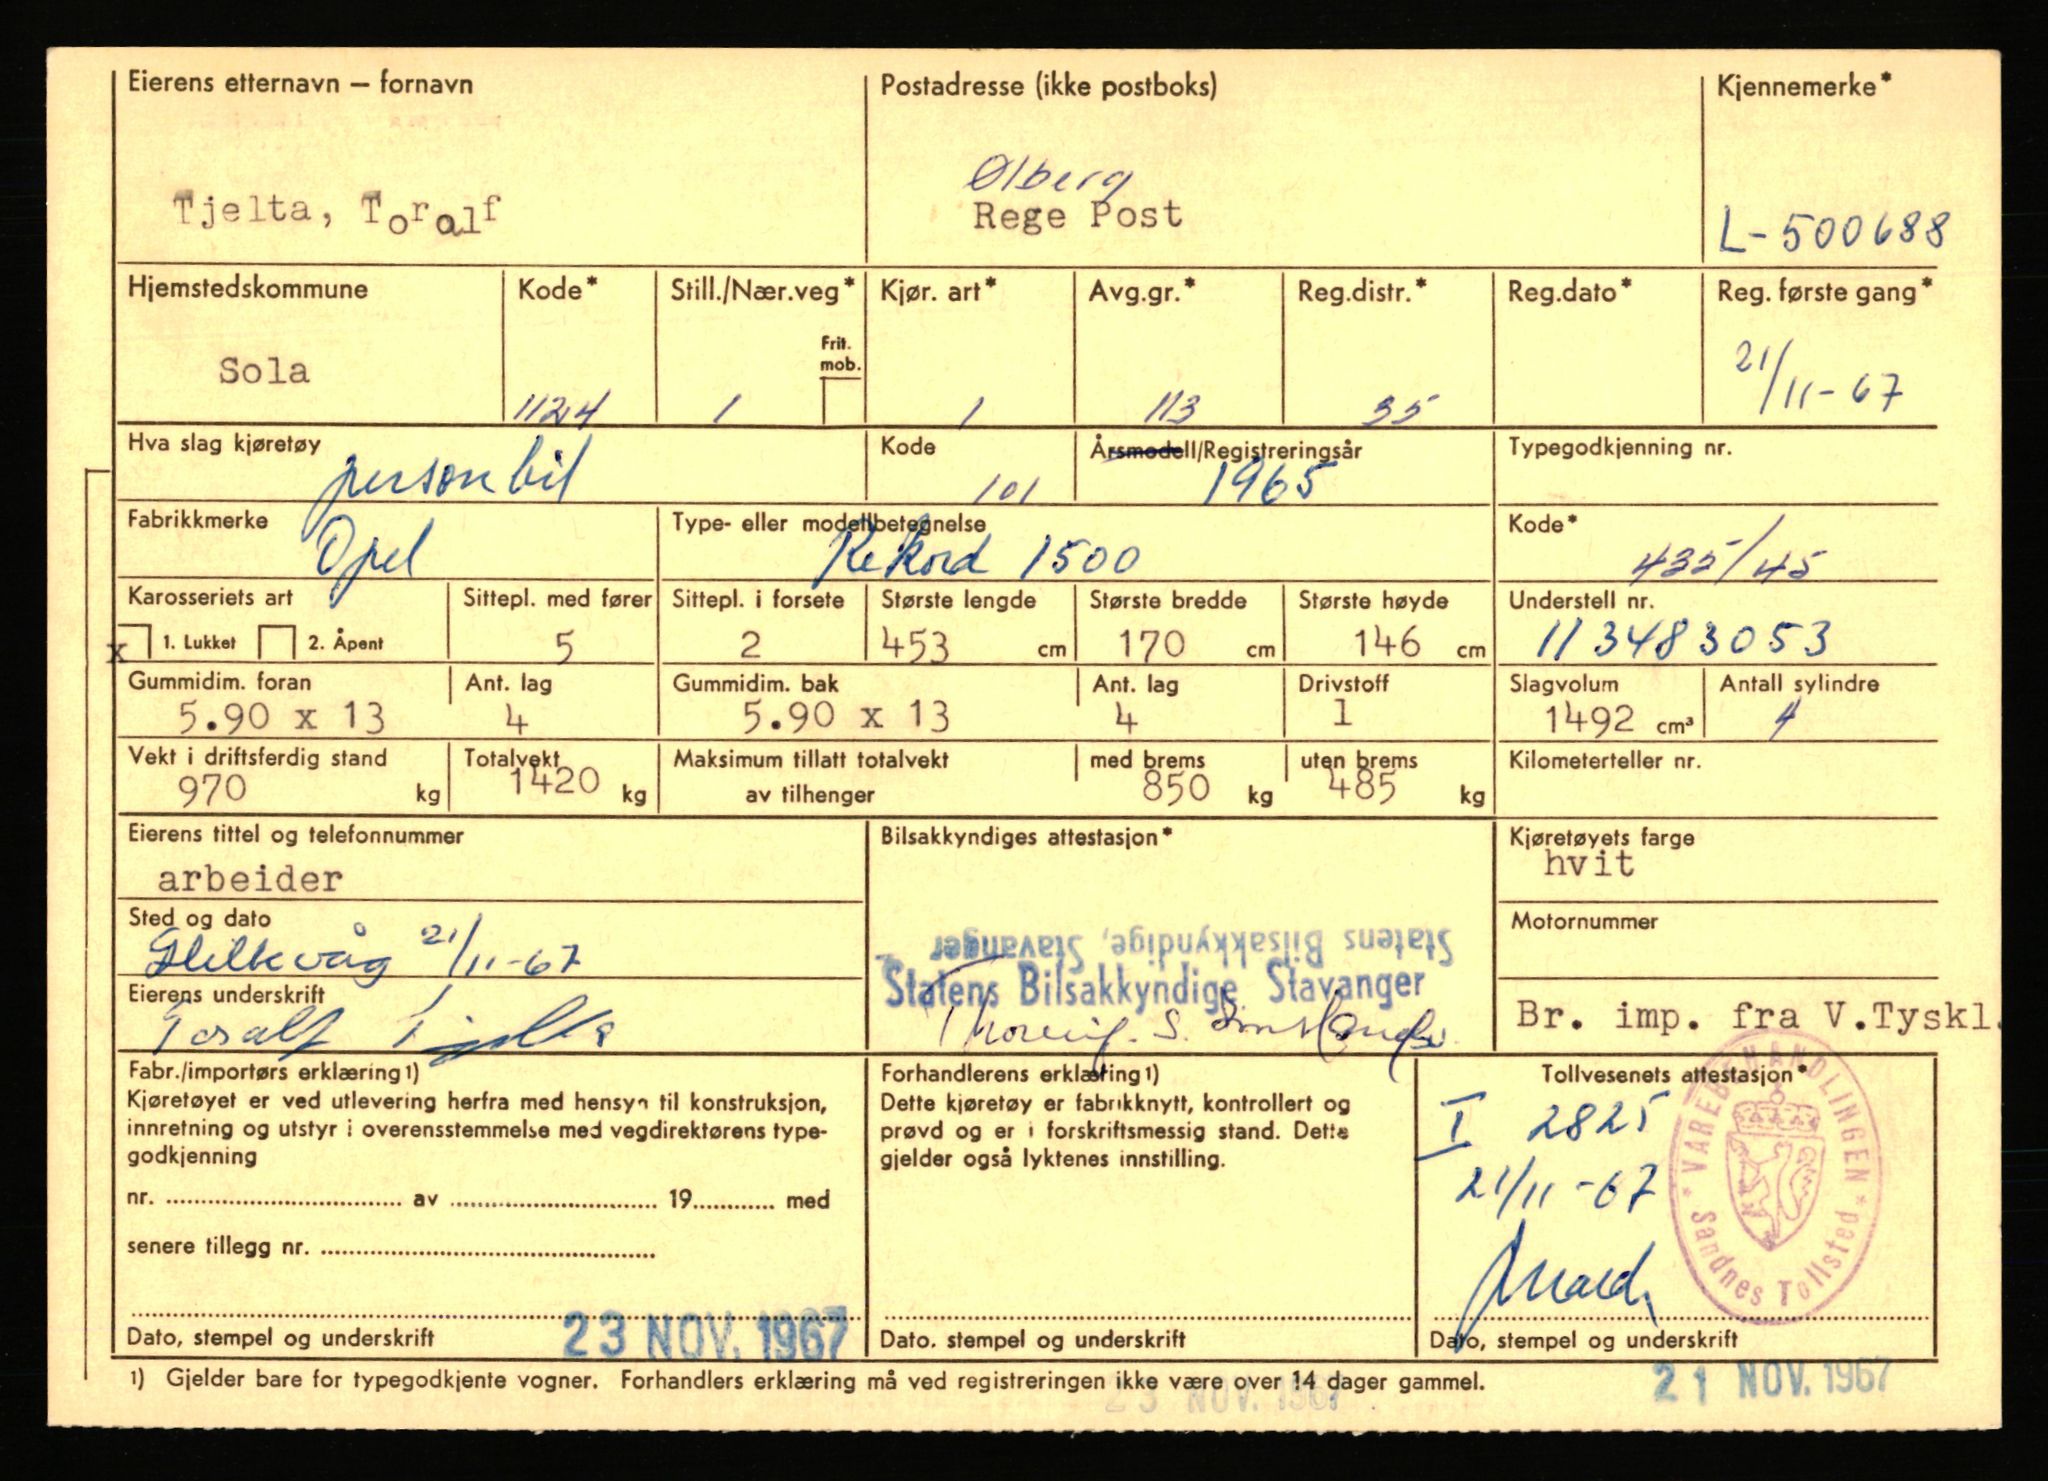 Eierens etternavn — fornavn
Tjelta, Toralf
Postadresse (ikke postboks)
Ølberg
Rege Post
Kjennemerke*
L-500688
Hjemstedskommune
Sola
Kode*
1124
Still./Nær.veg*
1
Frit. mob.
Kjør. art*
1
Avg.gr.*
113
Reg.distr.*
35
Reg.dato*
Reg. første gang*
21/11-67
Hva slag kjøretøy
personbil
Kode
101
Årsmodell/Registreringsår
1965
Typegodkjenning nr.
Fabrikkmerke
Opel
Type- eller modellbetegnelse
Rekord 1500
Kode*
435/45
Karosseriets art
x 1. Lukket 2. Åpent
Sittepl. med fører
5
Sittepl. i forsete
2
Største lengde
453 cm
Største bredde
170 cm
Største høyde
146 cm
Understell nr.
113483053
Gummidim. foran
5.90 x 13
Ant. lag
4
Gummidim. bak
5.90 x 13
Ant. lag
4
Drivstoff
1
Slagvolum
1492 cm³
Antall sylindre
4
Vekt i driftsferdig stand
970 kg
Totalvekt
1420 kg
Maksimum tillatt totalvekt
av tilhenger
med brems
850 kg
uten brems
485 kg
Kilometerteller nr.
Eierens tittel og telefonnummer
arbeider
Bilsakkyndiges attestasjon*
Statens Bilsakkyndige, Stavanger
Statens Bilsakkyndige Stavanger
Kjøretøyets farge
hvit
Sted og dato
21/11-67
Motornummer
Eierens underskrift
Toralf Tjelta
Br. imp. fra V.Tyskl.
Fabr./importørs erklæring 1)
Kjøretøyet er ved utlevering herfra med hensyn til konstruksjon,
innretning og utstyr i overensstemmelse med vegdirektørens type-
godkjenning
nr. .......... av .......... 19.......... med
senere tillegg nr. ..........
Dato, stempel og underskrift
23 NOV. 1967
Forhandlerens erklæring 1)
Dette kjøretøy er fabrikknytt, kontrollert og
prøvd og er i forskriftsmessig stand. Dette
gjelder også lyktenes innstilling.
Dato. stempel og underskrift
Tollvesenets attestasjon*
I 2825
21/11-67
* VAREBEHANDLINGEN * Sandnes Tollsted
Dato, stempel og underskrift
1) Gjelder bare for typegodkjente vogner. Forhandlers erklæring må ved registreringen ikke være over 14 dager gammel.
23 NOV. 1967
21 NOV. 1967